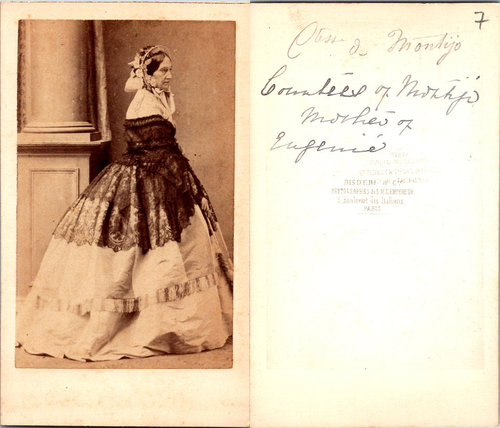 7
Ctsse de Montijo
Countess of Montijo
Mother of
Eugenié
DISDERI & Cie
PHOTOGRAPHES de S.M. L'EMPEREUR
8, boulevart des Italiens,
PARIS